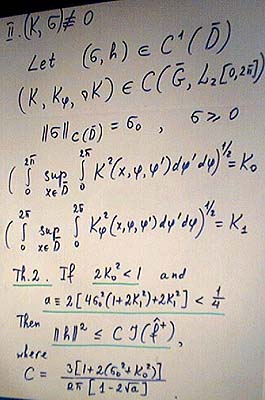 II. (K, σ) ≢ 0
Let (σ, h) ∈ C¹(D̄)
(K, K_φ, ∂K) ∈ C(Ḡ, L₂[0,2π])
‖σ‖_C(D̄) = σ₀, σ ⩾ 0
(∫₀^2π sup_{x∈D̄} ∫₀^2π K²(x, φ, φ')dφ'dφ)^{1/2} = K₀
(∫₀^2π sup_{x∈D̄} ∫₀^2π K_φ²(x, φ, φ')dφ'dφ)^{1/2} = K₁
Th.2. If 2K₀² < 1 and
a ≡ 2[4σ₀²(1+2K₁²)+2K₁²] < 1/4
Then
‖h‖² ≤ C J(f̂⁺),
where
C = 3[1+2(σ₀²+K₀²)] / 2π[1-2√a]